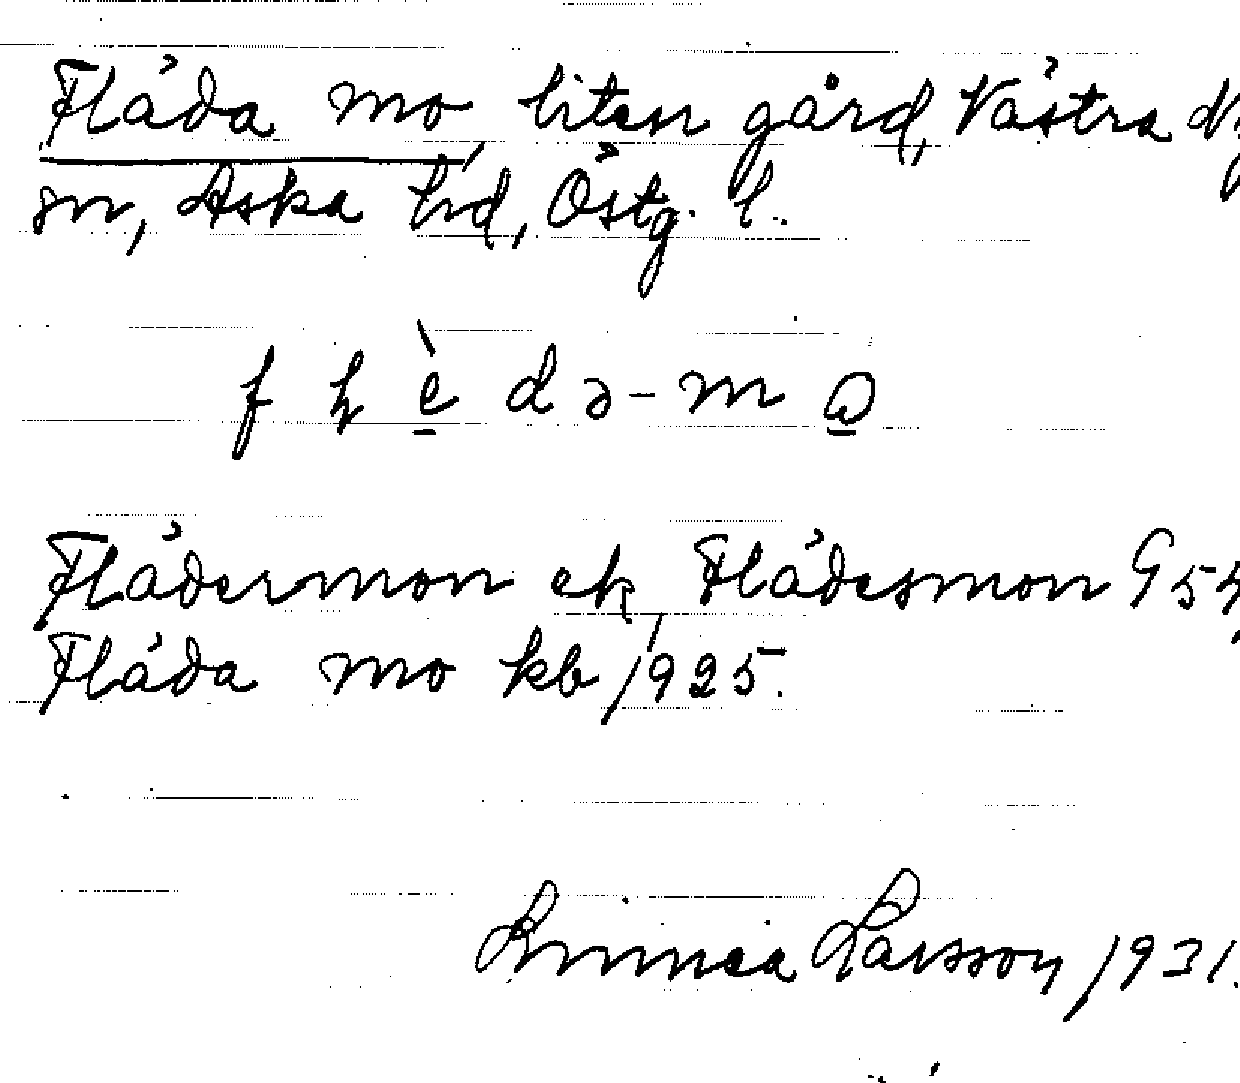 Fläda mo, liten gård, Västra Ny
sn, Aska hd, Östg. l.
f l è d ə - m ω
Flädermon ek, Flädesmon G 54,
Fläda mo kb 1925.
Linnea Larsson 1931.